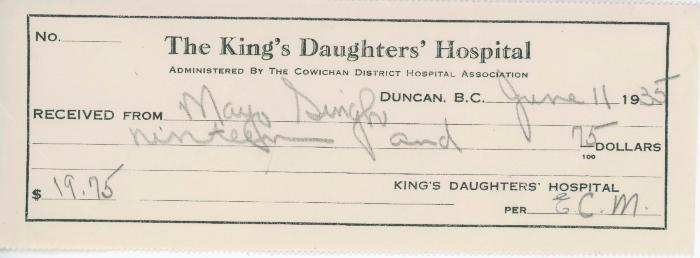 No.
The King's Daughters' Hospital
Administered By The Cowichan District Hospital Association
Duncan, B.C. June 11 1935
Received from Mayo Singh
ninteen and 75/100 Dollars
$ 19.75 King's Daughters' Hospital
Per E.C.M.